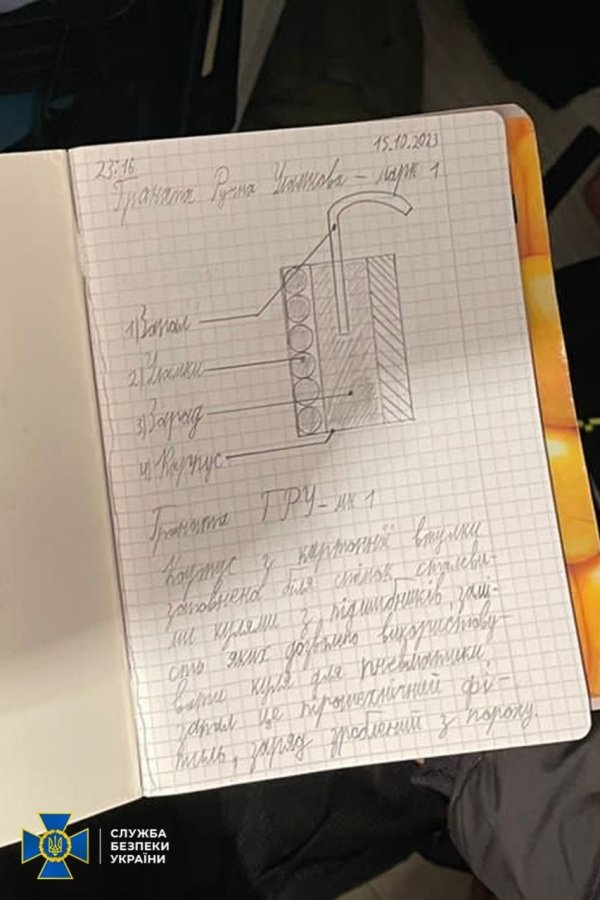 23:16
15.10.2023
Граната Ручна Уламкова – марк 1
1) Запал
2) Уламки
3) Заряд
4) Корпус
Граната ГРУ – мк 1
Корпус з картонної втулки
заповнено біля стінок сталеви-
ми кулями з підшибників, замі-
сть яких дозволено використову-
вати кулі для пневматики
запал це піротехнічний фі-
тиль, заряд зроблений з пороху.
СЛУЖБА
БЕЗПЕКИ
УКРАЇНИ